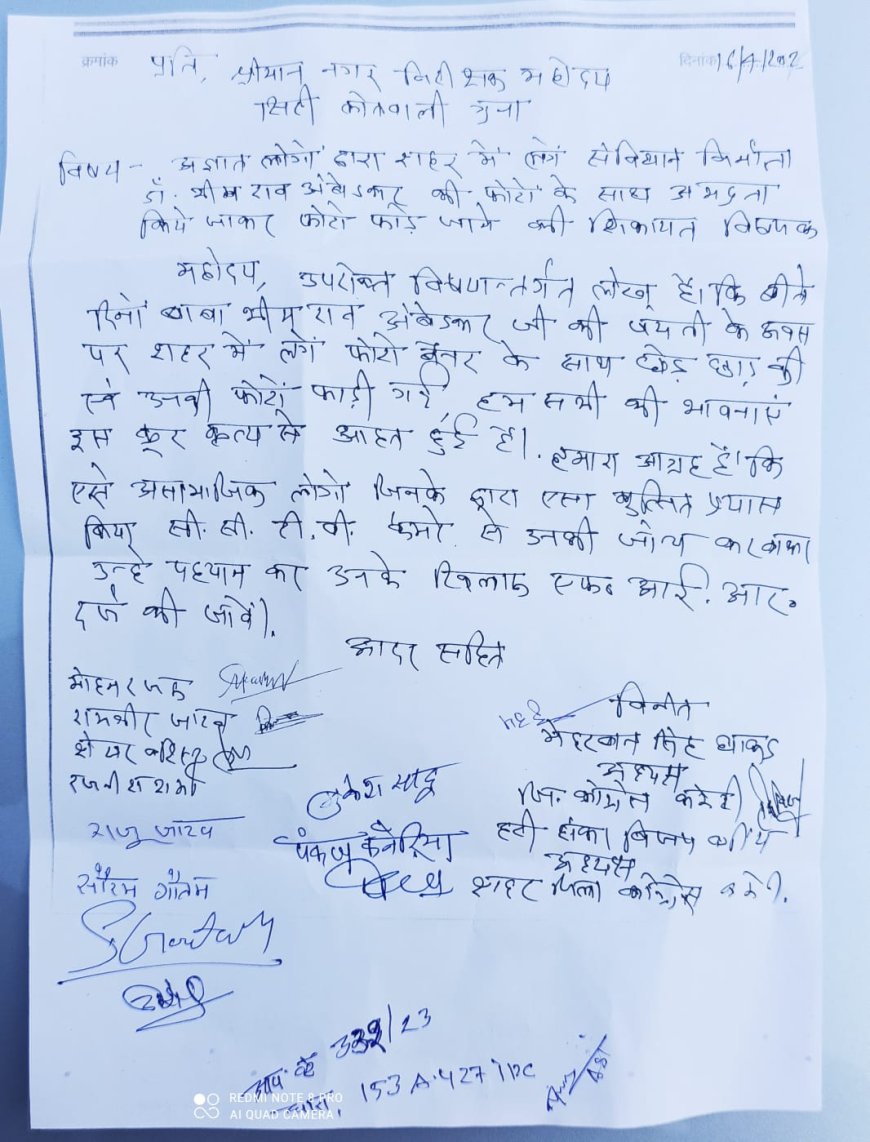 क्रमांक
दिनांक 16/4/202
प्रति, श्रीमान नगर निरीक्षक महोदय
सिटी कोतवाली गुना
विषय - अज्ञात लोगों द्वारा शहर में लगे संविधान निर्माता
डॉ. भीम राव अंबेडकर की फोटो के साथ अभद्रता
किये जाकर फोटो फाड़े जाने की शिकायत विषयक
महोदय, उपरोक्त विषयान्तर्गत लेख है। कि बीते
दिनों बाबा भीम राव अंबेडकर जी की जयंती के
पर शहर में लगे फोटो बैनर के साथ छेड़ छाड़ की
एवं उनकी फोटों फाड़ी गई, हम सभी की भावनाएं
इस क्रूर कृत्य से आहत हुई है। हमारा आग्रह है। कि
एसे असामाजिक लोगो जिनके द्वारा एसा कुत्सित प्रयास
किया सी. सी. टी. वी. केमरे से उनकी जांच करवाकर
उन्हे पहचान कर उनके खिलाफ एफ. आई. आर.
दर्ज की जावें।
आदर सहित
मोहन रजक
रामवीर जाटव
शेखर
रजनीश शर्मा
राजू जाटव
सौरभ गौतम
SGautam
मुकेश साहू
पंकज कनेरिया
विनीत
मेहरबान सिंह धाकड़
अध्यक्ष
जि. कांग्रेस कमेटी
हरी शंकर विजयवर्गीय
अध्यक्ष
शहर जिला कांग्रेस कमेटी.
अप क्रं 332/23
धारा. 153 A. 427 IPC
REDMI NOTE 8 PRO
AI QUAD CAMERA